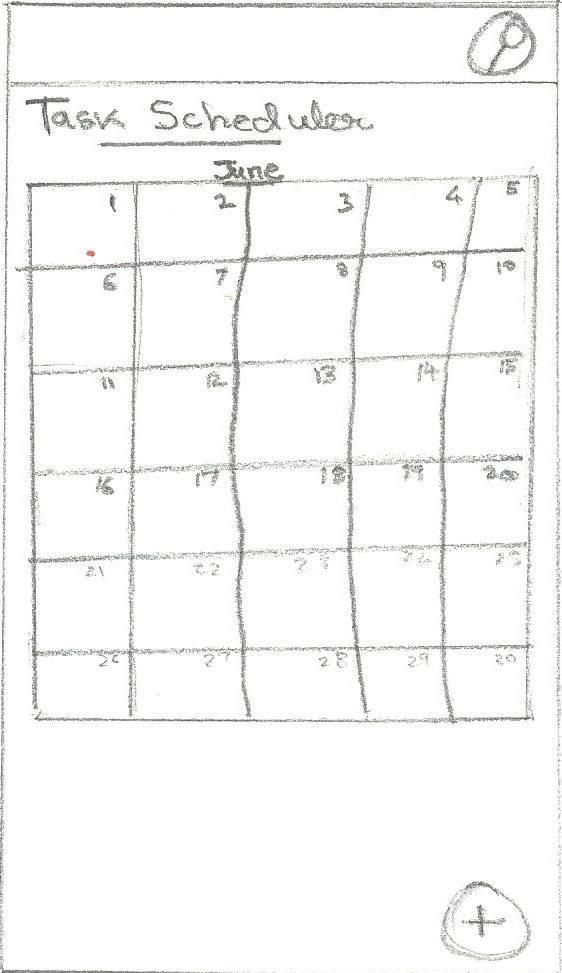 Task Scheduler
June
1 2 3 4 5
6 7 8 9 10
11 12 13 14 15
16 17 18 19 200
21 22 23 24 25
26 27 28 29 30
+